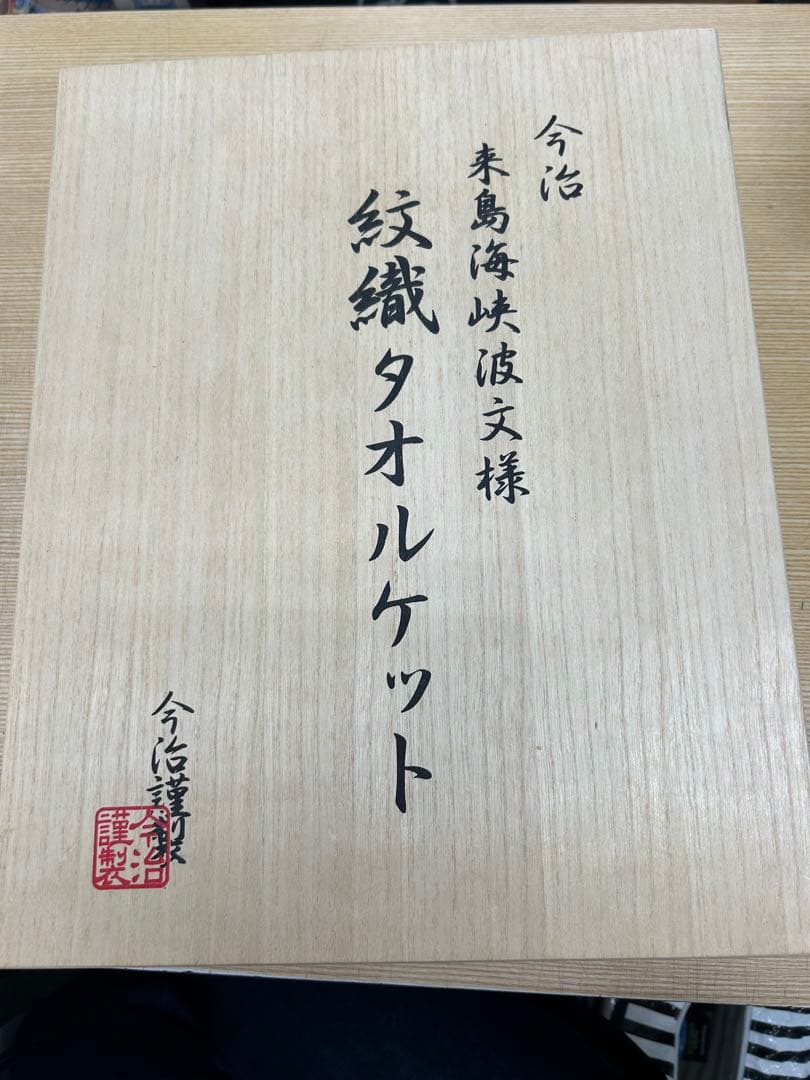 今治
来島海峡波文様
紋織タオルケット
今治謹製
今治
謹製